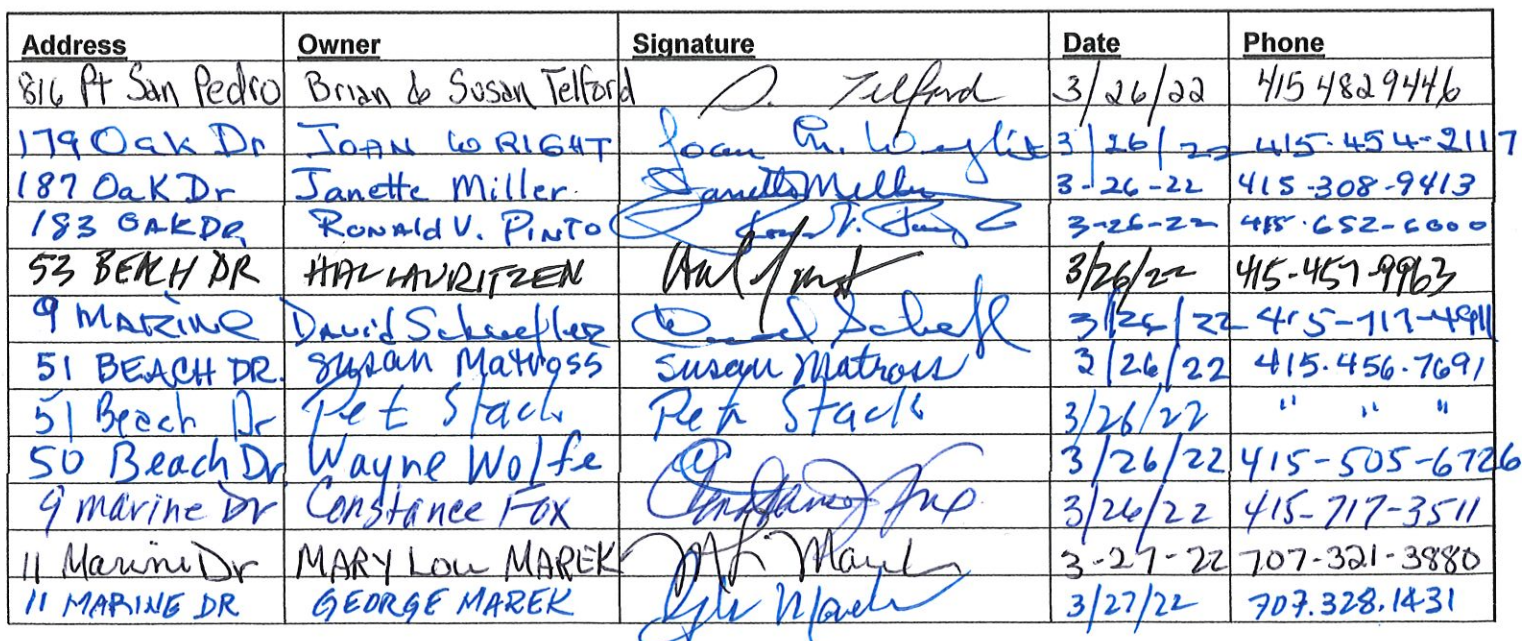 Address Owner Signature Date Phone
816 Pt San Pedro Brian & Susan Telford S. Telford 3/26/22 415 482 9446
179 Oak Dr JOAN WRIGHT Joan M. Wright 3/26/22 415-454-2117
187 Oak Dr Janette Miller Janette Miller 3-26-22 415-308-9413
183 OAK DR RONAld V. PINTO 3-26-22 415-652-6000
53 BEACH DR HAL LAURITZEN 3/26/22 415-457-9963
9 MARINE David Schaeffler 3/26/22 415-717-4911
51 BEACH DR. Susan Matross Susan Matross 3/26/22 415.456.7691
51 Beach Dr Pet Stack Pet Stack 3/26/22 " " "
50 Beach Dr Wayne Wolfe 3/26/22 415-505-6726
9 marine Dr Constance Fox Constance Fox 3/26/22 415-717-3511
11 Marine Dr MARY LOU MAREK ML Marek 3-27-22 707-321-3880
11 MARINE DR GEORGE MAREK 3/27/22 707.328.1431